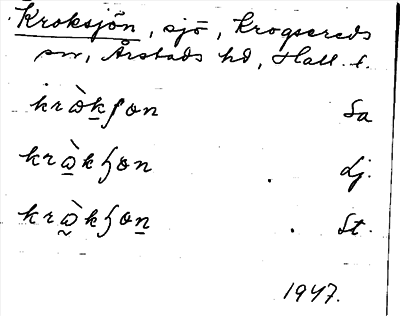 Kroksjön, sjö, Krogsereds
sn, Årstads hd, Hall. l.
kròkʃon Sa
kròkɧon Lj.
kròkɧon St.
1947.